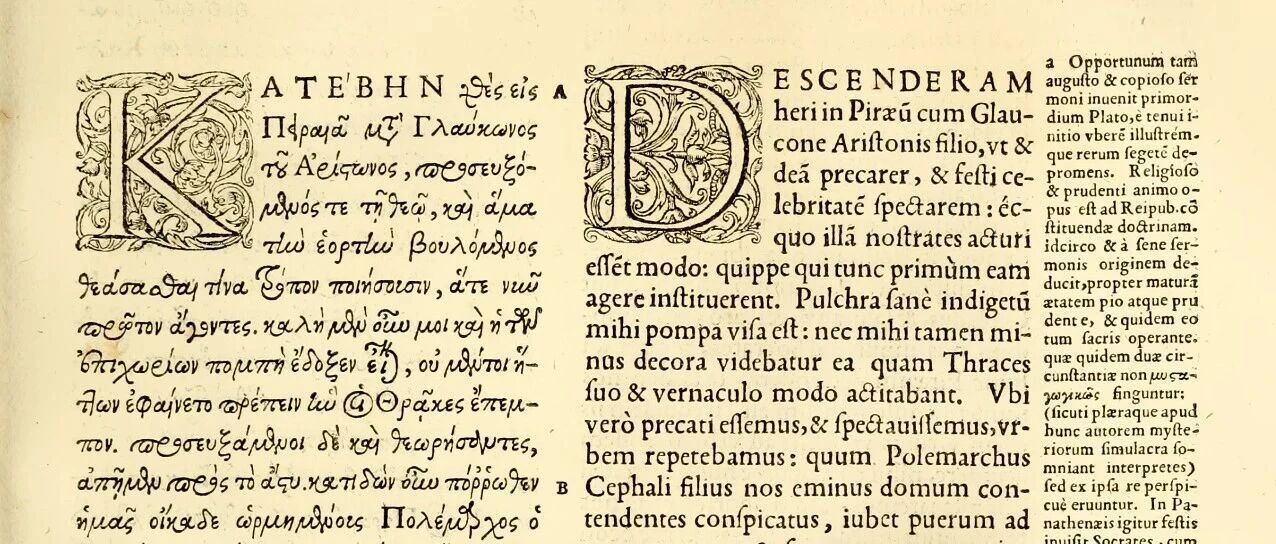 ΚΑΤΕ´ΒΗΝ χθὲς εἰς
Πειραιᾶ μετὰ Γλαύκωνος
τοῦ Ἀρίστωνος, προσευξό-
μενός τε τῇ θεῷ, καὶ ἅμα
τὴν ἑορτὴν βουλόμενος
θεάσασθαι τίνα τρόπον ποιήσουσιν, ἅτε νῦν
πρῶτον ἄγοντες. καλὴ μὲν οὖν μοι καὶ ἡ τῶν
ἐπιχωρίων πομπὴ ἔδοξεν εἶ), οὐ μέντοι ἧ-
τΊον ἐφαίνετο πρέπειν ἣν οἱ Θρᾷκες ἔπεμ-
πον. προσευξάμενοι δὲ καὶ θεωρήσαντες,
ἀπῇμεν πρὸς τὸ ἄστυ. κατιδὼν οὖν πόρρωθεν
ἡμᾶς οἴκαδε ὡρμημένους Πολέμαρχος ὁ
A
B
DESCENDERAM
heri in Piræū cum Glau-
cone Ariſtonis filio, vt &
deā precarer, & feſti ce-
lebritatē ſpectarem: éc-
quo illā noſtrates acturi
eſſēt modo: quippe qui tunc primùm eam
agere inſtituerent. Pulchra ſanè indigetū
mihi pompa viſa eſt: nec mihi tamen mi-
nus decora videbatur ea quam Thraces
ſuo & vernaculo modo actitabant. Vbi
verò precati eſſemus, & ſpectauiſſemus, vr-
bem repetebamus: quum Polemarchus
Cephali filius nos eminus domum con-
tendentes conſpicatus, iubet puerum ad
a Opportunum tam
auguſto & copioſo ſer
moni inuenit primor-
dium Plato, è tenui i-
nitio vberē illuſtrém-
que rerum ſegetē de-
promens. Religioſo
& prudenti animo o-
pus eſt ad Reipub. cō
ſtituendæ doctrinam.
idcirco & à ſene ſer-
monis originem de-
ducit, propter maturā
ætatem pio atque pru
dente, & quidem eo
tum ſacris operante.
quæ quidem duæ cir-
cunſtantiæ non μυστα-
γωγικῶς finguntur:
(ſicuti plæraque apud
hunc autorem myſte-
riorum ſimulacra ſo-
mniant interpretes)
ſed ex ipſa re perſpi-
cuè eruuntur. In Pa-
nathenæis igitur feſtis
inuiſit Socrates, cum